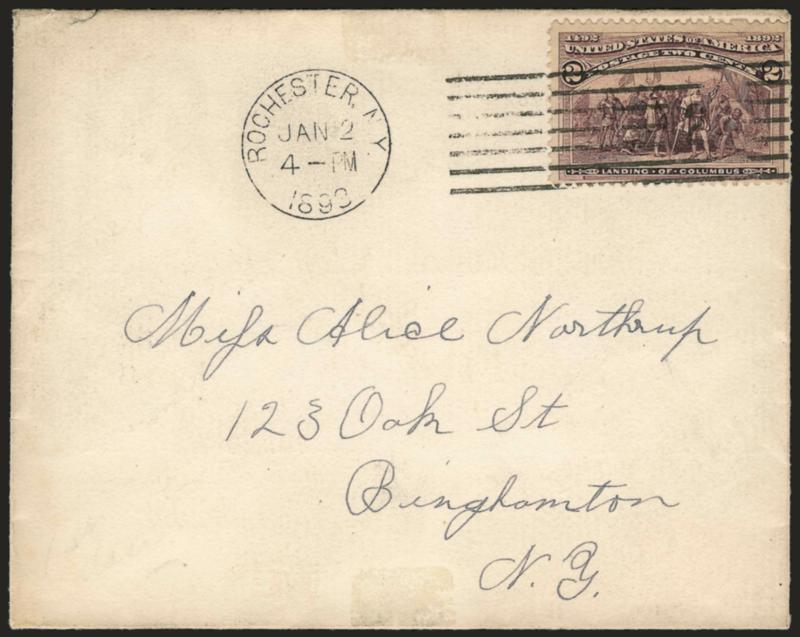 1492 1892
UNITED STATES OF AMERICA
POSTAGE TWO CENTS
2 2
LANDING · OF · COLUMBUS
ROCHESTER, N.Y.
JAN 2
4 - PM
1893
Miss Alice Northrup
123 Oak St
Binghamton
N.Y.